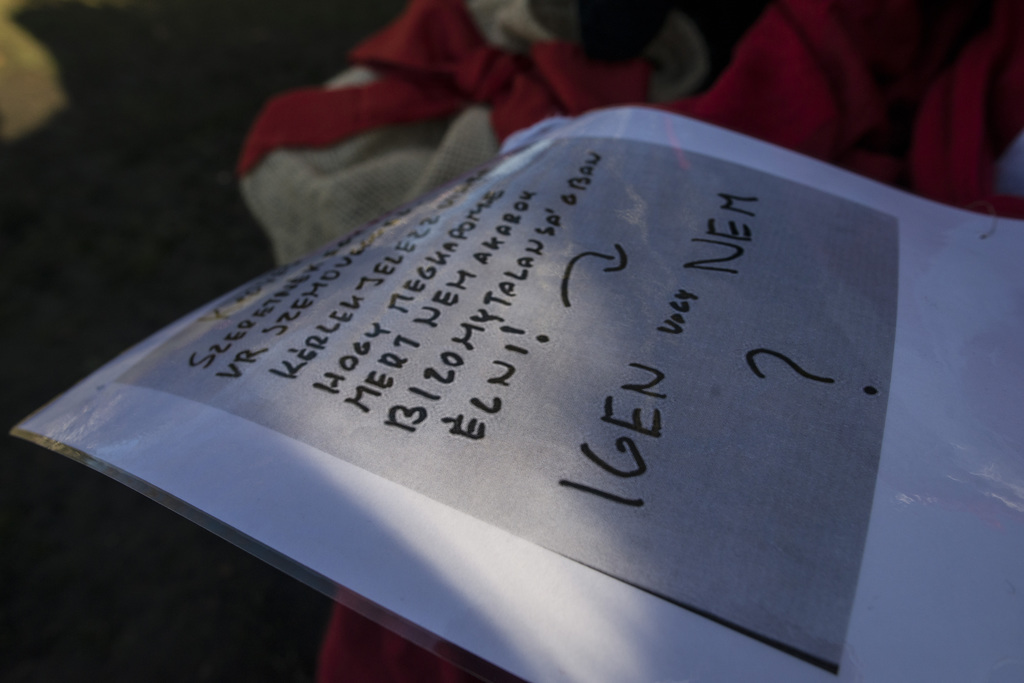 SZERETNÉK E
VR SZEMÜVEGET
KÉRLEK JELEZZ
HOGY MEGKAPOM E
MERT NEM AKAROK
BIZOMYTALANSÁGBAN
ÉLNI!
IGEN vagy NEM
?